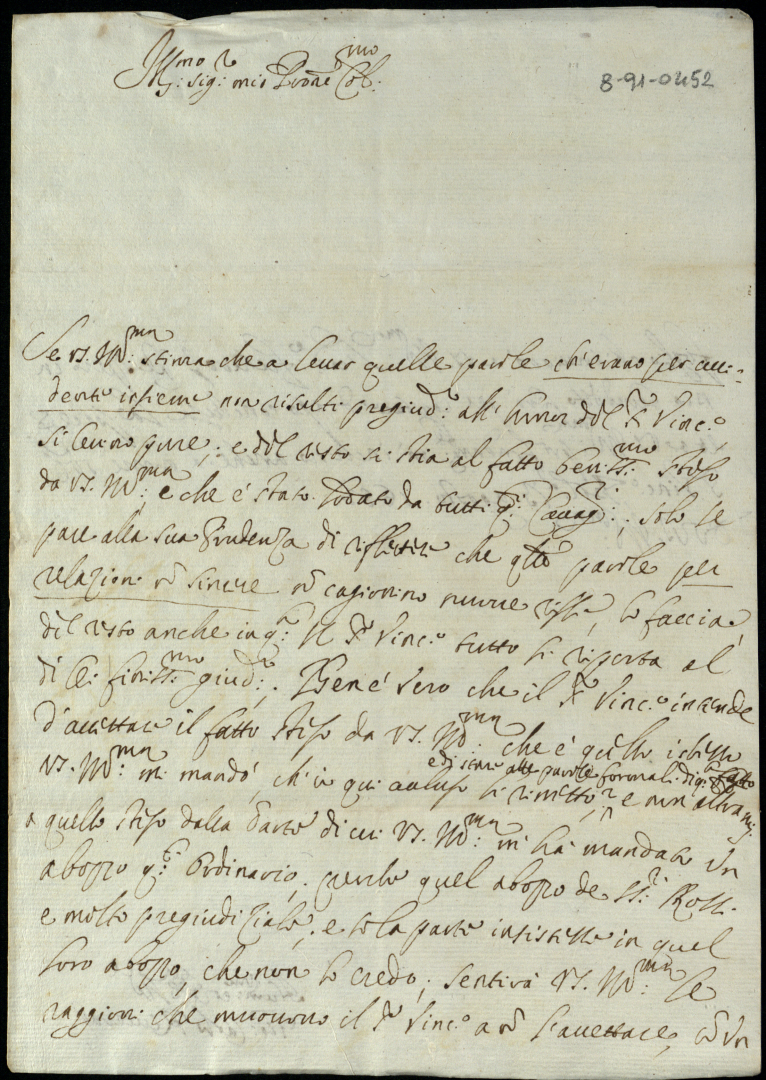 Ill:mo sig:r mio Prone Col:mo
8-91-0452
Se vs. Ill:ma stima che a levar quelle parole ch'erano per acci=
denti insieme non risulti pregiud:o all' honor del Sr. Vinc:o,
si levino pure; e del resto si stia al fatto beniss:mo steso
da vs. Ill:ma, e che è stato lodato da tutti q.ti Cavag:ri; solo se
pare alla sua Prudenza di riflettere che q.lle parole per
relazioni non sincere non cagionino nuove risse, lo faccia,
del resto anche in q.o il Sr. Vinc:o tutto si riporta al
di lei finiss:mo giud:o. Ben è vero che il Sr. Vinc:o intende
d'accettare il fatto steso da vs. Ill:ma che è quello istesso
vs. Ill:ma mi mandò, ch'io qui
e di stare alle parole formali di q.o fatto
e non altram:
a quello steso dalla Parte di cui vs. Ill:ma m'ha mandato un
abozzo q.o Ordinario; perche quel abozzo de SS:ri Ross:
e molto pregiudiziale, e se la parte insistesse in quel
loro abozzo, che non lo credo; sentirà vs. Ill:ma le
raggioni che muovono il Sr. Vinc:o a non l'accettare, con un